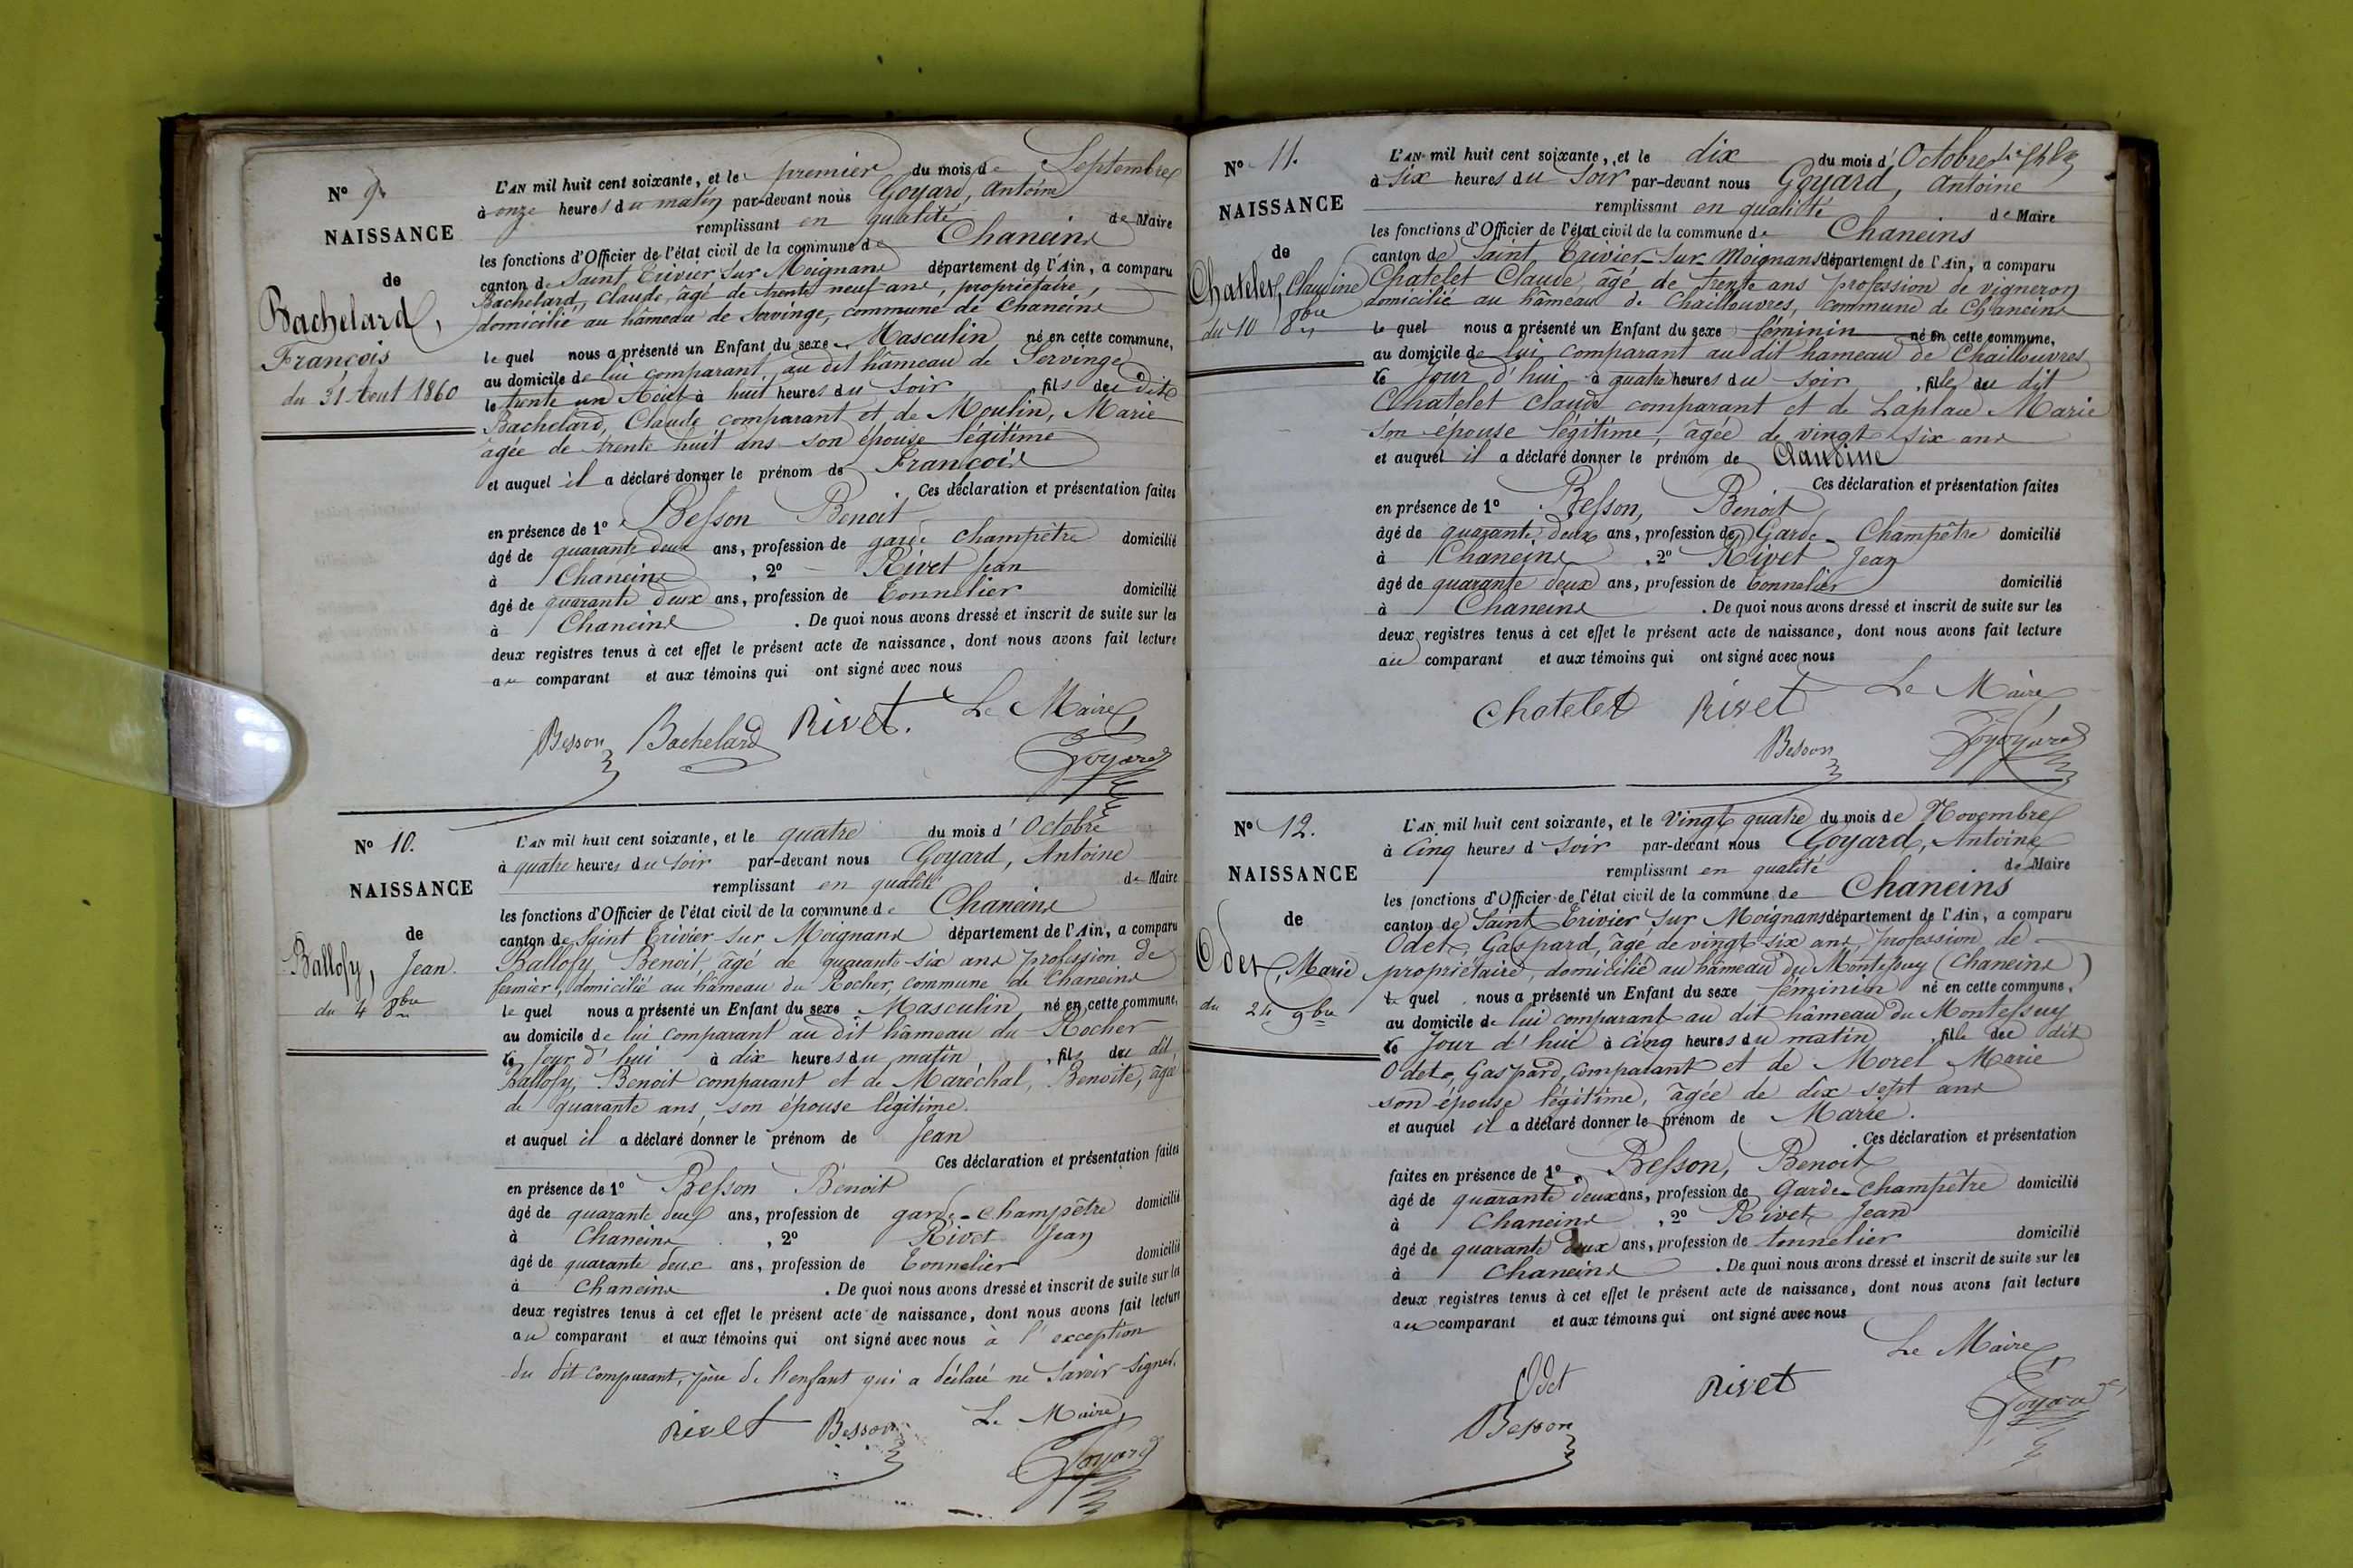 N° 9
NAISSANCE
de
Bachelard,
François
du 31 Aout 1860
L'AN mil huit cent soixante, et le premier du mois de Septembre
à onze heures du matin par-devant nous Goyard, Antoine
remplissant en qualité de Maire
les fonctions d'Officier de l'état civil de la commune de Chaneins
canton de Saint Trivier sur Moignans département de l'Ain, a comparu
Bachelard, Claude, âgé de trente neuf ans, propriétaire,
domicilié au hâmeau de Servinge, commune de Chaneins
le quel nous a présenté un Enfant du sexe Masculin né en cette commune,
au domicile de lui comparant, au dit hâmeau de Servinge
le trente un Aout à huit heures du soir fils du dit
Bachelard, Claude comparant et de Moulin, Marie
âgée de trente huit ans son épouse légitime
et auquel il a déclaré donner le prénom de François
. Ces déclaration et présentation faites
en présence de 1° Besson Benoit
âgé de quarante deux ans, profession de garde champêtre domicilié
à Chaneins , 2° Rivet Jean
âgé de quarante deux ans, profession de Tonnelier domicilié
à Chaneins . De quoi nous avons dressé et inscrit de suite sur les
deux registres tenus à cet effet le présent acte de naissance, dont nous avons fait lecture
au comparant et aux témoins qui ont signé avec nous
Besson Bachelard Rivet. Le Maire
Goyard
N° 10.
NAISSANCE
de
Ballofy, Jean.
du 4 8bre
L'AN mil huit cent soixante, et le quatre du mois d' Octobre
à quatre heures du soir par-devant nous Goyard, Antoine
remplissant en qualité de Maire
les fonctions d'Officier de l'état civil de la commune de Chaneins
canton de Saint Trivier sur Moignans département de l'Ain, a comparu
Ballofy Benoit âgé de quarante-six ans profession de
fermier, domicilié au hâmeau du Rocher, commune de Chaneins
le quel nous a présenté un Enfant du sexe Masculin né en cette commune,
au domicile de lui comparant au dit hâmeau du Rocher
le Jour d'hui à dix heures du matin , fils du dit
Ballofy, Benoit comparant et de Maréchal, Benoite, âgée
de quarante ans, son épouse légitime.
et auquel il a déclaré donner le prénom de Jean
Ces déclaration et présentation faites
en présence de 1° Besson Benoit
âgé de quarante deux ans, profession de garde-champêtre domicilié
à Chaneins , 2° Rivet Jean
âgé de quarante deux ans, profession de Tonnelier domicilié
à Chaneins . De quoi nous avons dressé et inscrit de suite sur les
deux registres tenus à cet effet le présent acte de naissance, dont nous avons fait lecture
au comparant et aux témoins qui ont signé avec nous à l'exception
du dit comparant, père de l'enfant qui a déclaré ne savoir signer.
Rivet Besson Le Maire
Goyard
N° 11.
NAISSANCE
de
Chatelet, Claudine
du 10 8bre
L'AN mil huit cent soixante, et le dix du mois d' Octobre
à six heures du soir par-devant nous Goyard, Antoine
remplissant en qualité de Maire
les fonctions d'Officier de l'état civil de la commune de Chaneins
canton de Saint Trivier-sur-Moignans département de l'Ain, a comparu
Chatelet Claude, âgé de trente ans profession de vigneron
domicilié au hâmeau de Chaillouvres, commune de Chaneins
le quel nous a présenté un Enfant du sexe féminin né en cette commune,
au domicile de lui comparant au dit hameau de Chaillouvres
le Jour d'hui à quatre heures du soir , fille du dit
Chatelet Claude comparant et de Laplace Marie
son épouse légitime, âgée de vingt six ans
et auquel il a déclaré donner le prénom de Claudine
Ces déclaration et présentation faites
en présence de 1° Besson, Benoit
âgé de quarante deux ans, profession de Garde-Champêtre domicilié
à Chaneins , 2° Rivet Jean
âgé de quarante deux ans, profession de Tonnelier domicilié
à Chaneins . De quoi nous avons dressé et inscrit de suite sur les
deux registres tenus à cet effet le présent acte de naissance, dont nous avons fait lecture
au comparant et aux témoins qui ont signé avec nous
Chatelet Rivet Le Maire
Besson Goyard
N° 12.
NAISSANCE
de
Odet, Marie
du 24 9bre
L'AN mil huit cent soixante, et le Vingt quatre du mois de Novembre
à Cinq heures d soir par-devant nous Goyard, Antoine
remplissant en qualité de Maire
les fonctions d'Officier de l'état civil de la commune de Chaneins
canton de Saint Trivier sur Moignans département de l'Ain, a comparu
Odet, Gaspard, âgé de vingt-six ans, profession de
propriétaire, domicilié au hâmeau du Montessuy (Chaneins)
le quel nous a présenté un Enfant du sexe féminin né en cette commune,
au domicile de lui comparant au dit hâmeau du Montessuy
le Jour d'hui à cinq heures du matin , fille du dit
Odet, Gaspard, comparant et de Morel Marie
son épouse légitime, âgée de dix sept ans
et auquel il a déclaré donner le prénom de Marie.
. Ces déclaration et présentation
faites en présence de 1° Besson, Benoit
âgé de quarante deux ans, profession de Garde-Champêtre domicilié
à Chaneins , 2° Rivet Jean
âgé de quarante deux ans, profession de tonnelier domicilié
à Chaneins . De quoi nous avons dressé et inscrit de suite sur les
deux registres tenus à cet effet le présent acte de naissance, dont nous avons fait lecture
au comparant et aux témoins qui ont signé avec nous
Le Maire
Odet Rivet
Besson Goyard